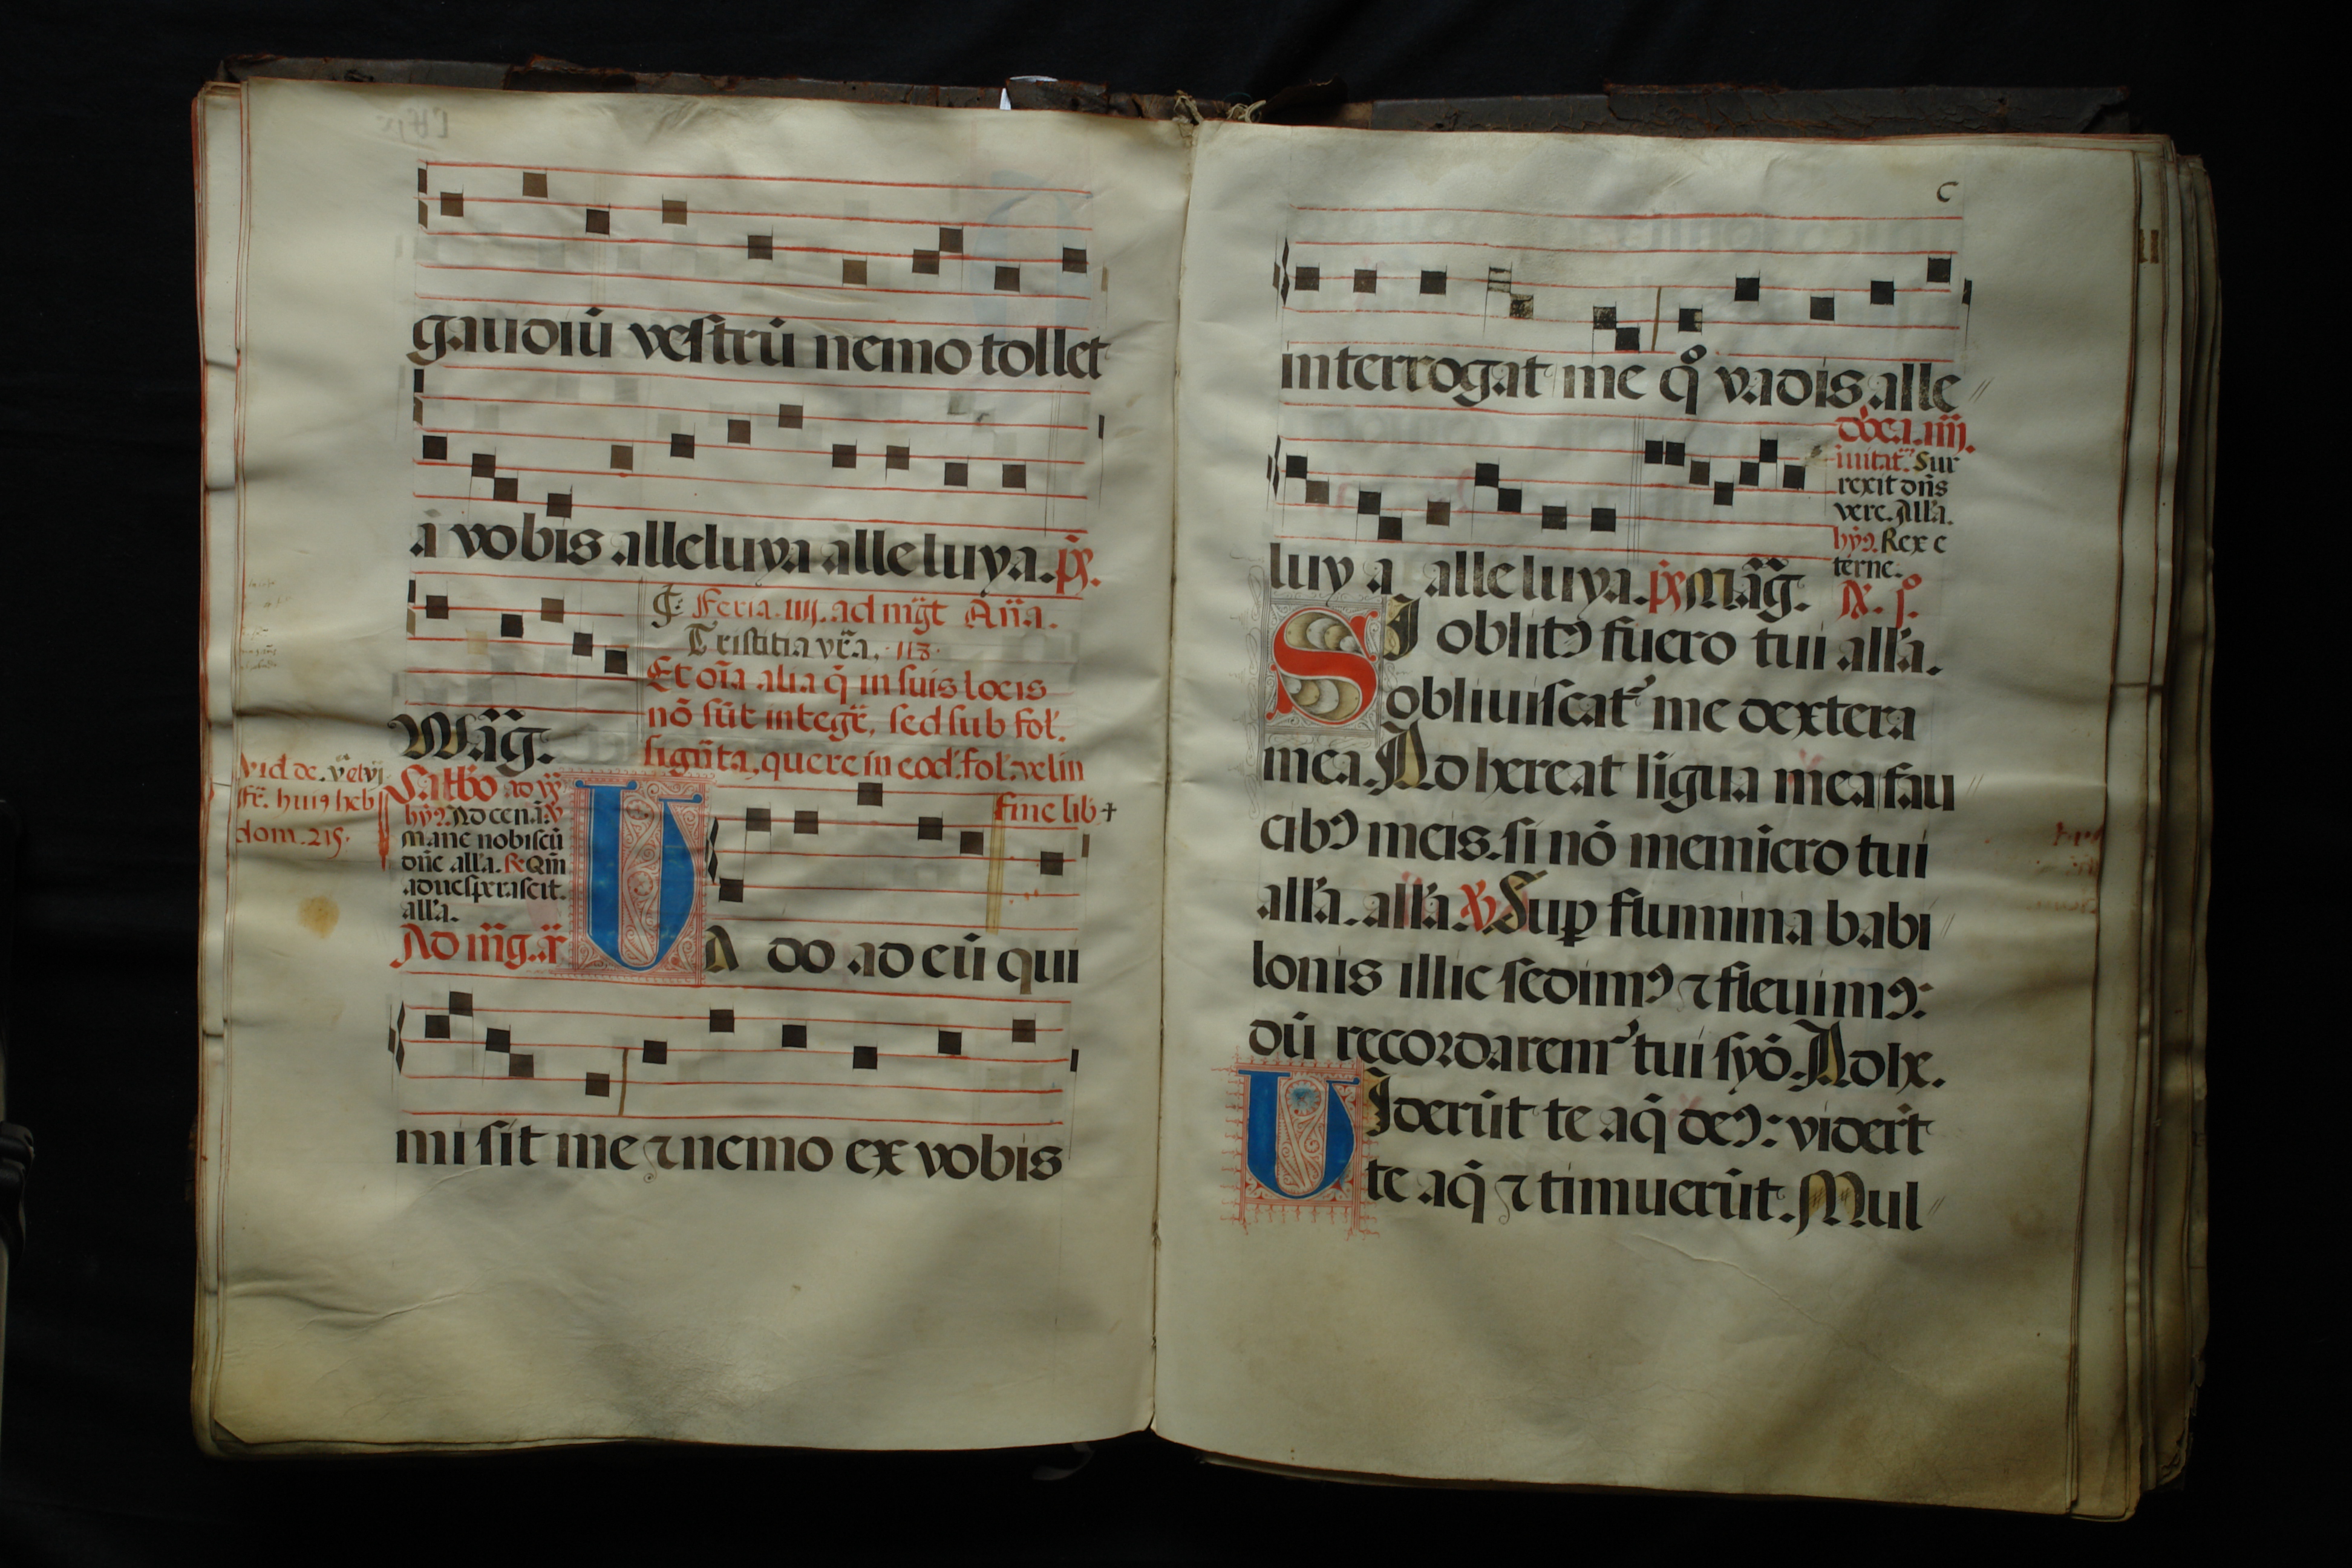 gaudiū vestrū nemo tollet
a vobis alleluya alleluya. ps̄.
Feria. iiij. ad mg̃t Añа.
Tristitia vr̃a. 113.
Et oīa alia q̄ in suis locis
nō sūt integr̃, sed sub fol.
sigñta, quere in eod. fol. vel in
fine lib +
Mag̃.
Vid de. v̄el vj
fr̃. hui9 heb
dom. 215.
Sabbo ad vr̃
hy9. Ad cenā. v̄
mane nobiscū
dn̄e all'a. R. Qm̄
aduesperascit.
all'a.
Ad mg̃. ã
VA do ad eū qui
mi sit me ⁊ nemo ex vobis
C
interrogat me q° vadis alle
dōca. iiij.
inuitat. Sur
rexit dn̄s
vere. All'a.
hy9. Rex e
terne.
R. j°.
luy a alleluya. ps̄ Mag̃.
SI oblit9 fuero tui all'a.
obliuiscat' me dextera
mea. Ad hereat līgua mea fau
cib9 meis. si nō meminero tui
all'a. all'a. V̄. Sup flumina babi
lonis illic sedim9 ⁊ fleuim9:
dū recordarem' tui syō. Adhe.
VIderūt te aq̄ de9: vidert̄
te aq̄ ⁊ timuerūt. Mul